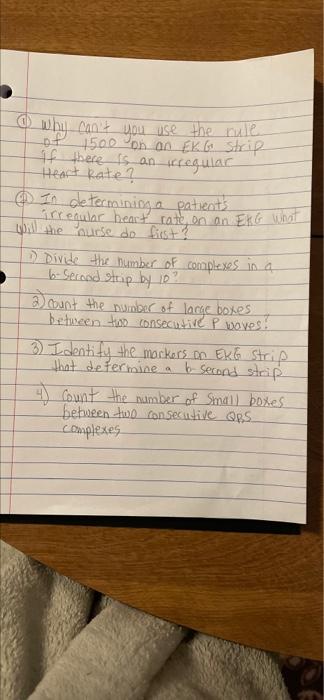 ① Why can't you use the rule
of 1500 on an EKG strip
if there is an irregular
Heart Rate?
② In determining a patient's
irregular heart rate, on an EKG what
will the nurse do first?
1) Divide the number of complexes in a
6-second strip by 10?
2) count the number of large boxes
between two consecutive P waves?
3) Identify the markers on EKG strip
that determine a 6 second strip
4) Count the number of small boxes
between two consecutive QRS
complexes